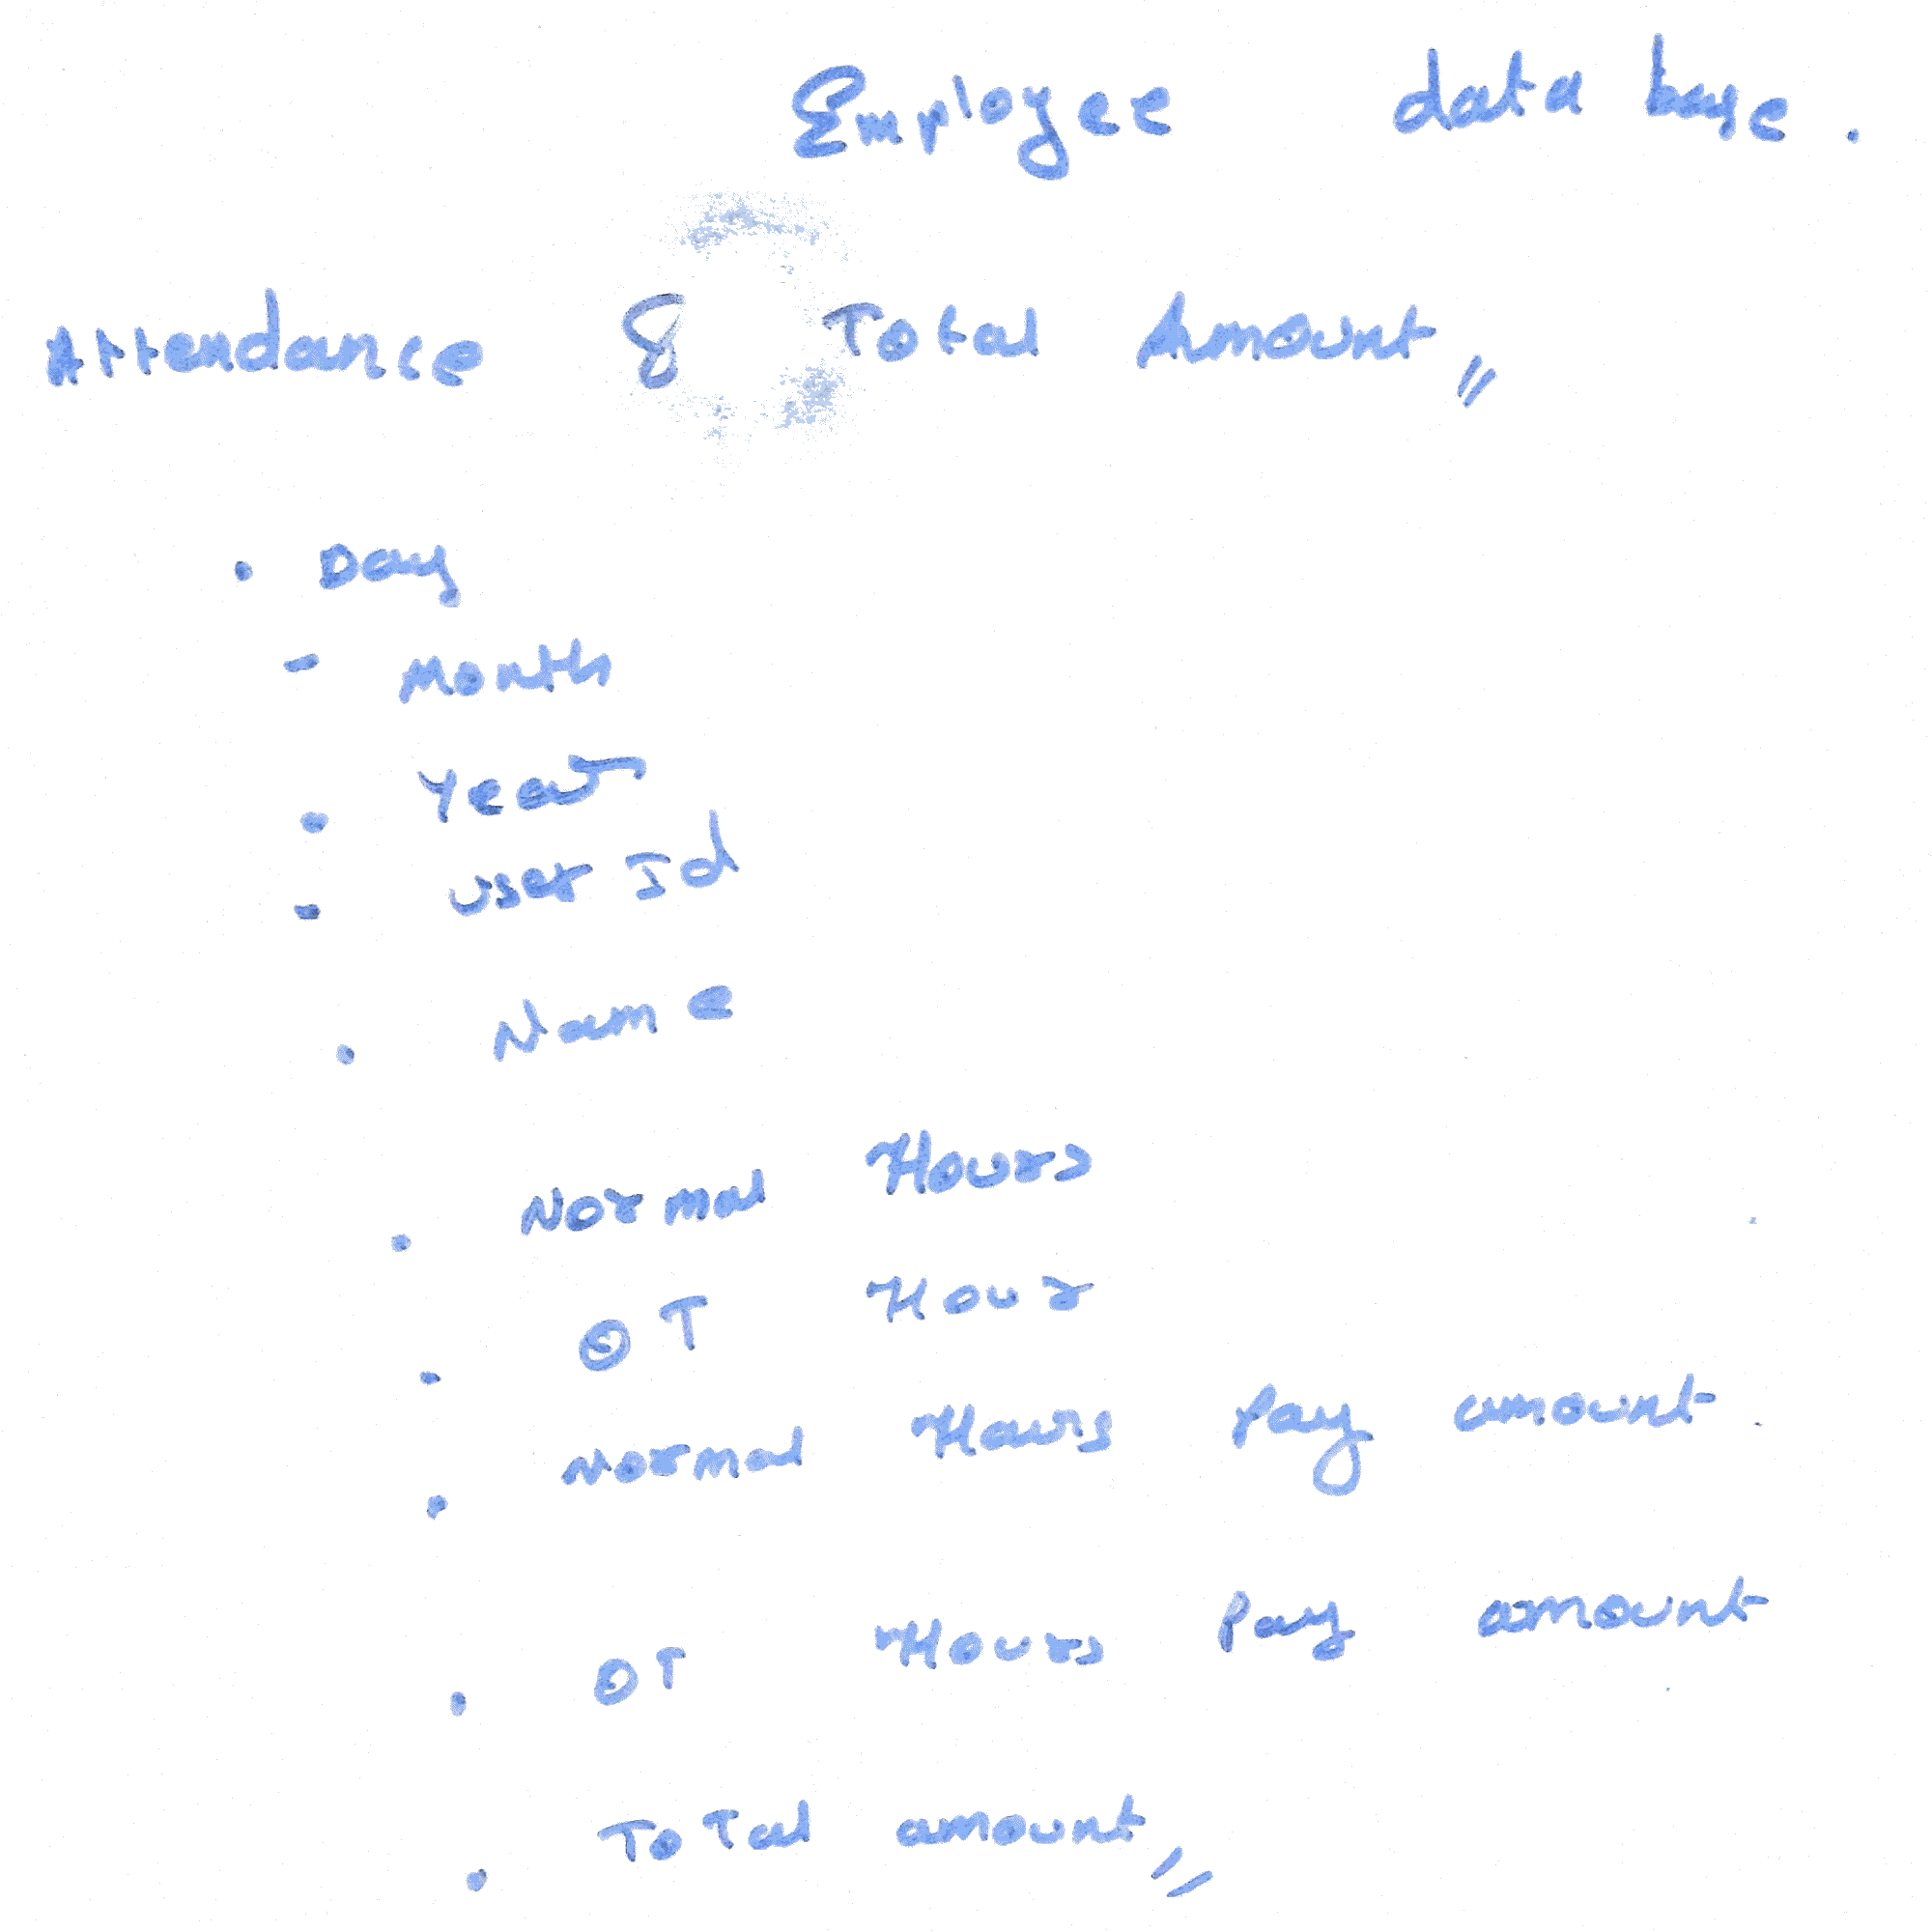 Employee data base.
Attendance & Total Amount,,
• Day
- Month
• Year
- User Id
• Name
• Normal Hours
• OT Hour
• Normal Hours Pay amount.
• OT Hours Pay amount
• Total amount,,